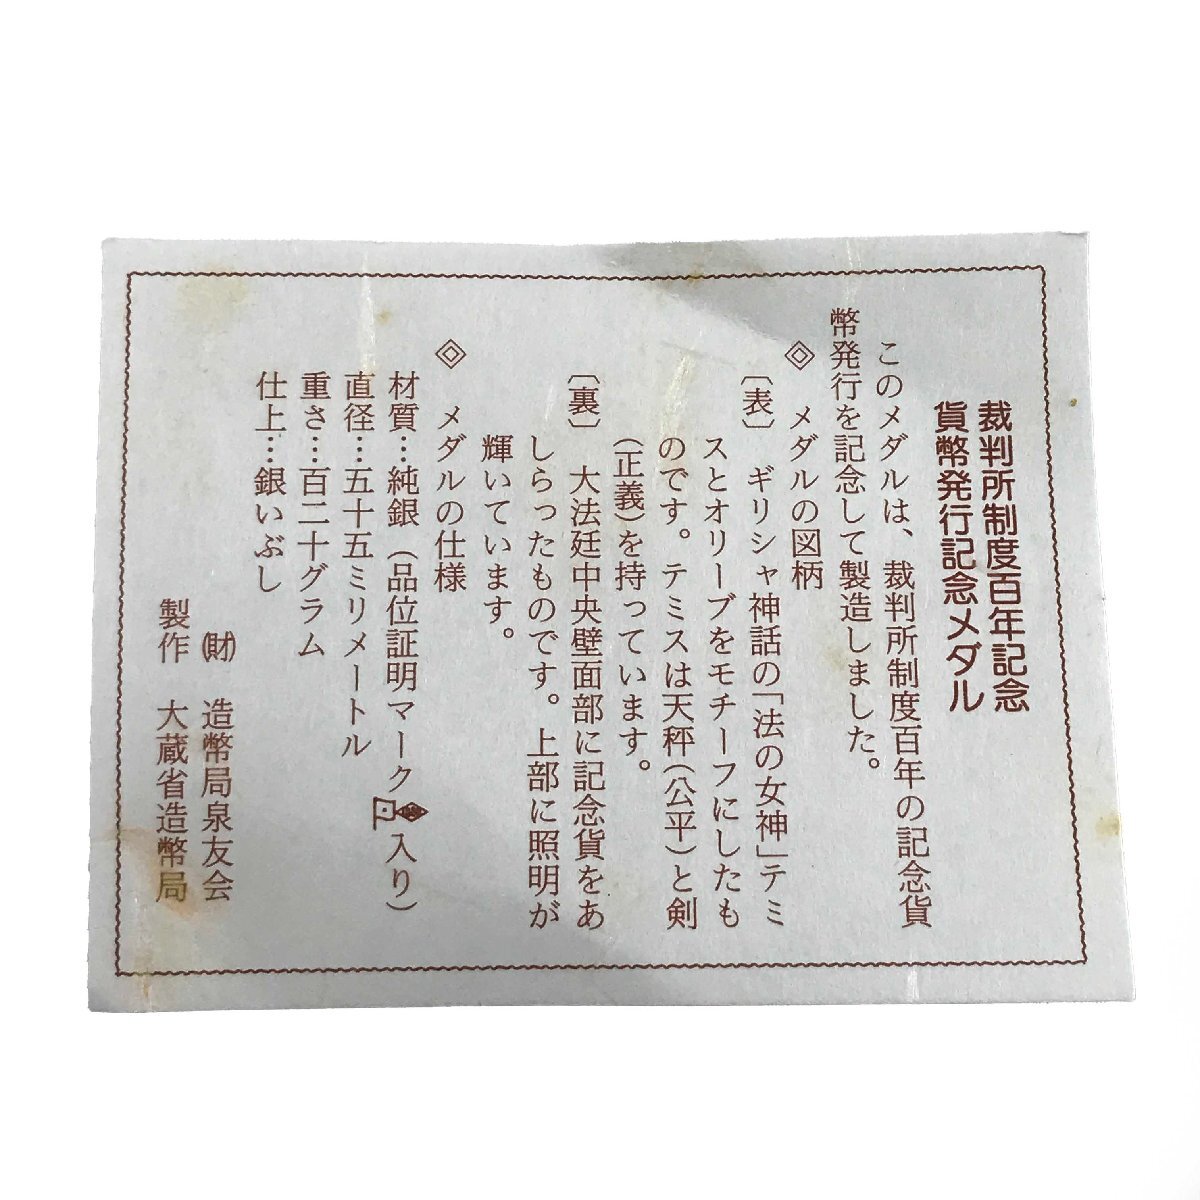 裁判所制度百年記念
貨幣発行記念メダル
このメダルは、裁判所制度百年の記念貨
幣発行を記念して製造しました。
◎ メダルの図柄
〔表〕 ギリシャ神話の「法の女神」テミ
スとオリーブをモチーフにしたも
のです。テミスは天秤(公平)と剣
(正義)を持っています。
〔裏〕 大法廷中央壁面部に記念貨をあ
しらったものです。上部に照明が
輝いています。
◎ メダルの仕様
材質…純銀(品位証明マーク入り)
直径…五十五ミリメートル
重さ…百二十グラム
仕上…銀いぶし
(財) 造幣局泉友会
製作 大蔵省造幣局